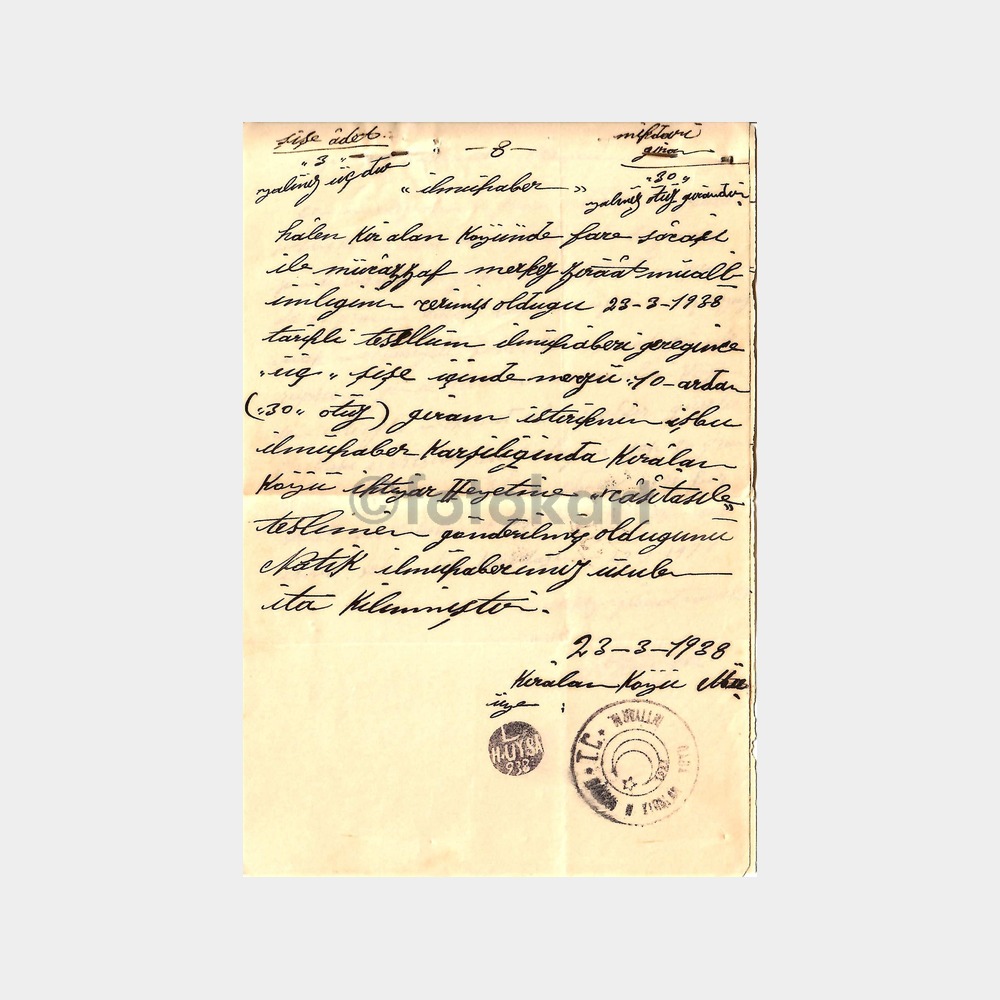 şişe âdet
„3„
yalınız üçdür
— 8 —
mikdarı
gıram
„30„
yalınız ötüz gıramdır
„ ilmühaber „
hâlen Kiralan Köyünde fare
ile merkez zırâât muall
imligini verimiş oldugu 23-3-1938
tarihli tesellüm ilmühaberi geregince
„üç„ şişe içinde „10„ ardan
(„30„ ötüz) gıram istirikinin işbu
ilmühaber Karşiliginda Kirâlan
Köyü ihtiyar Heyetine vâsıtasile
teslimen gönderilmiş oldugunu
Natik ilmühaberimiz usulen
ita Kılınmıştır.
23-3-1938
Kirâlan Köyü
üye
H.UYSA
938
T.C.
©fotokart